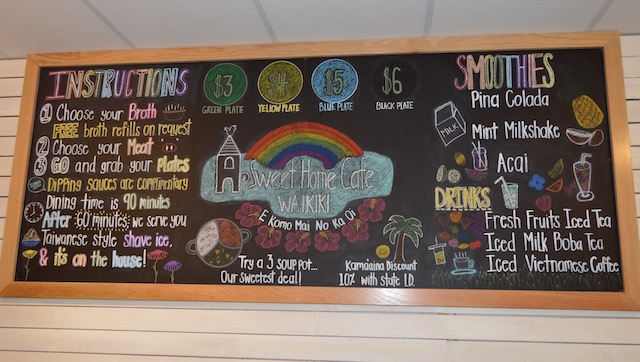 INSTRUCTIONS
1 Choose your Broth
FREE broth refills on request
2 Choose your Meat
3 GO and grab your Plates
Dipping sauces are complimentary
Dining time is 90 minutes
After 60 minutes, we serve you
Taiwanese style Shave ice,
& it's on the house!
$3
GREEN PLATE
$4
YELLOW PLATE
$5
BLUE PLATE
$6
BLACK PLATE
Sweet Home Cafe
WAIKIKI
E Komo Mai No Ka Oi
Try a 3 soup pot...
Our Sweetest deal!
Kama'aina Discount
10% with state I.D.
SMOOTHIES
Pina Colada
MILK
Mint Milkshake
Acai
DRINKS
Fresh Fruits Iced Tea
Iced Milk Boba Tea
Iced Vietnamese Coffee